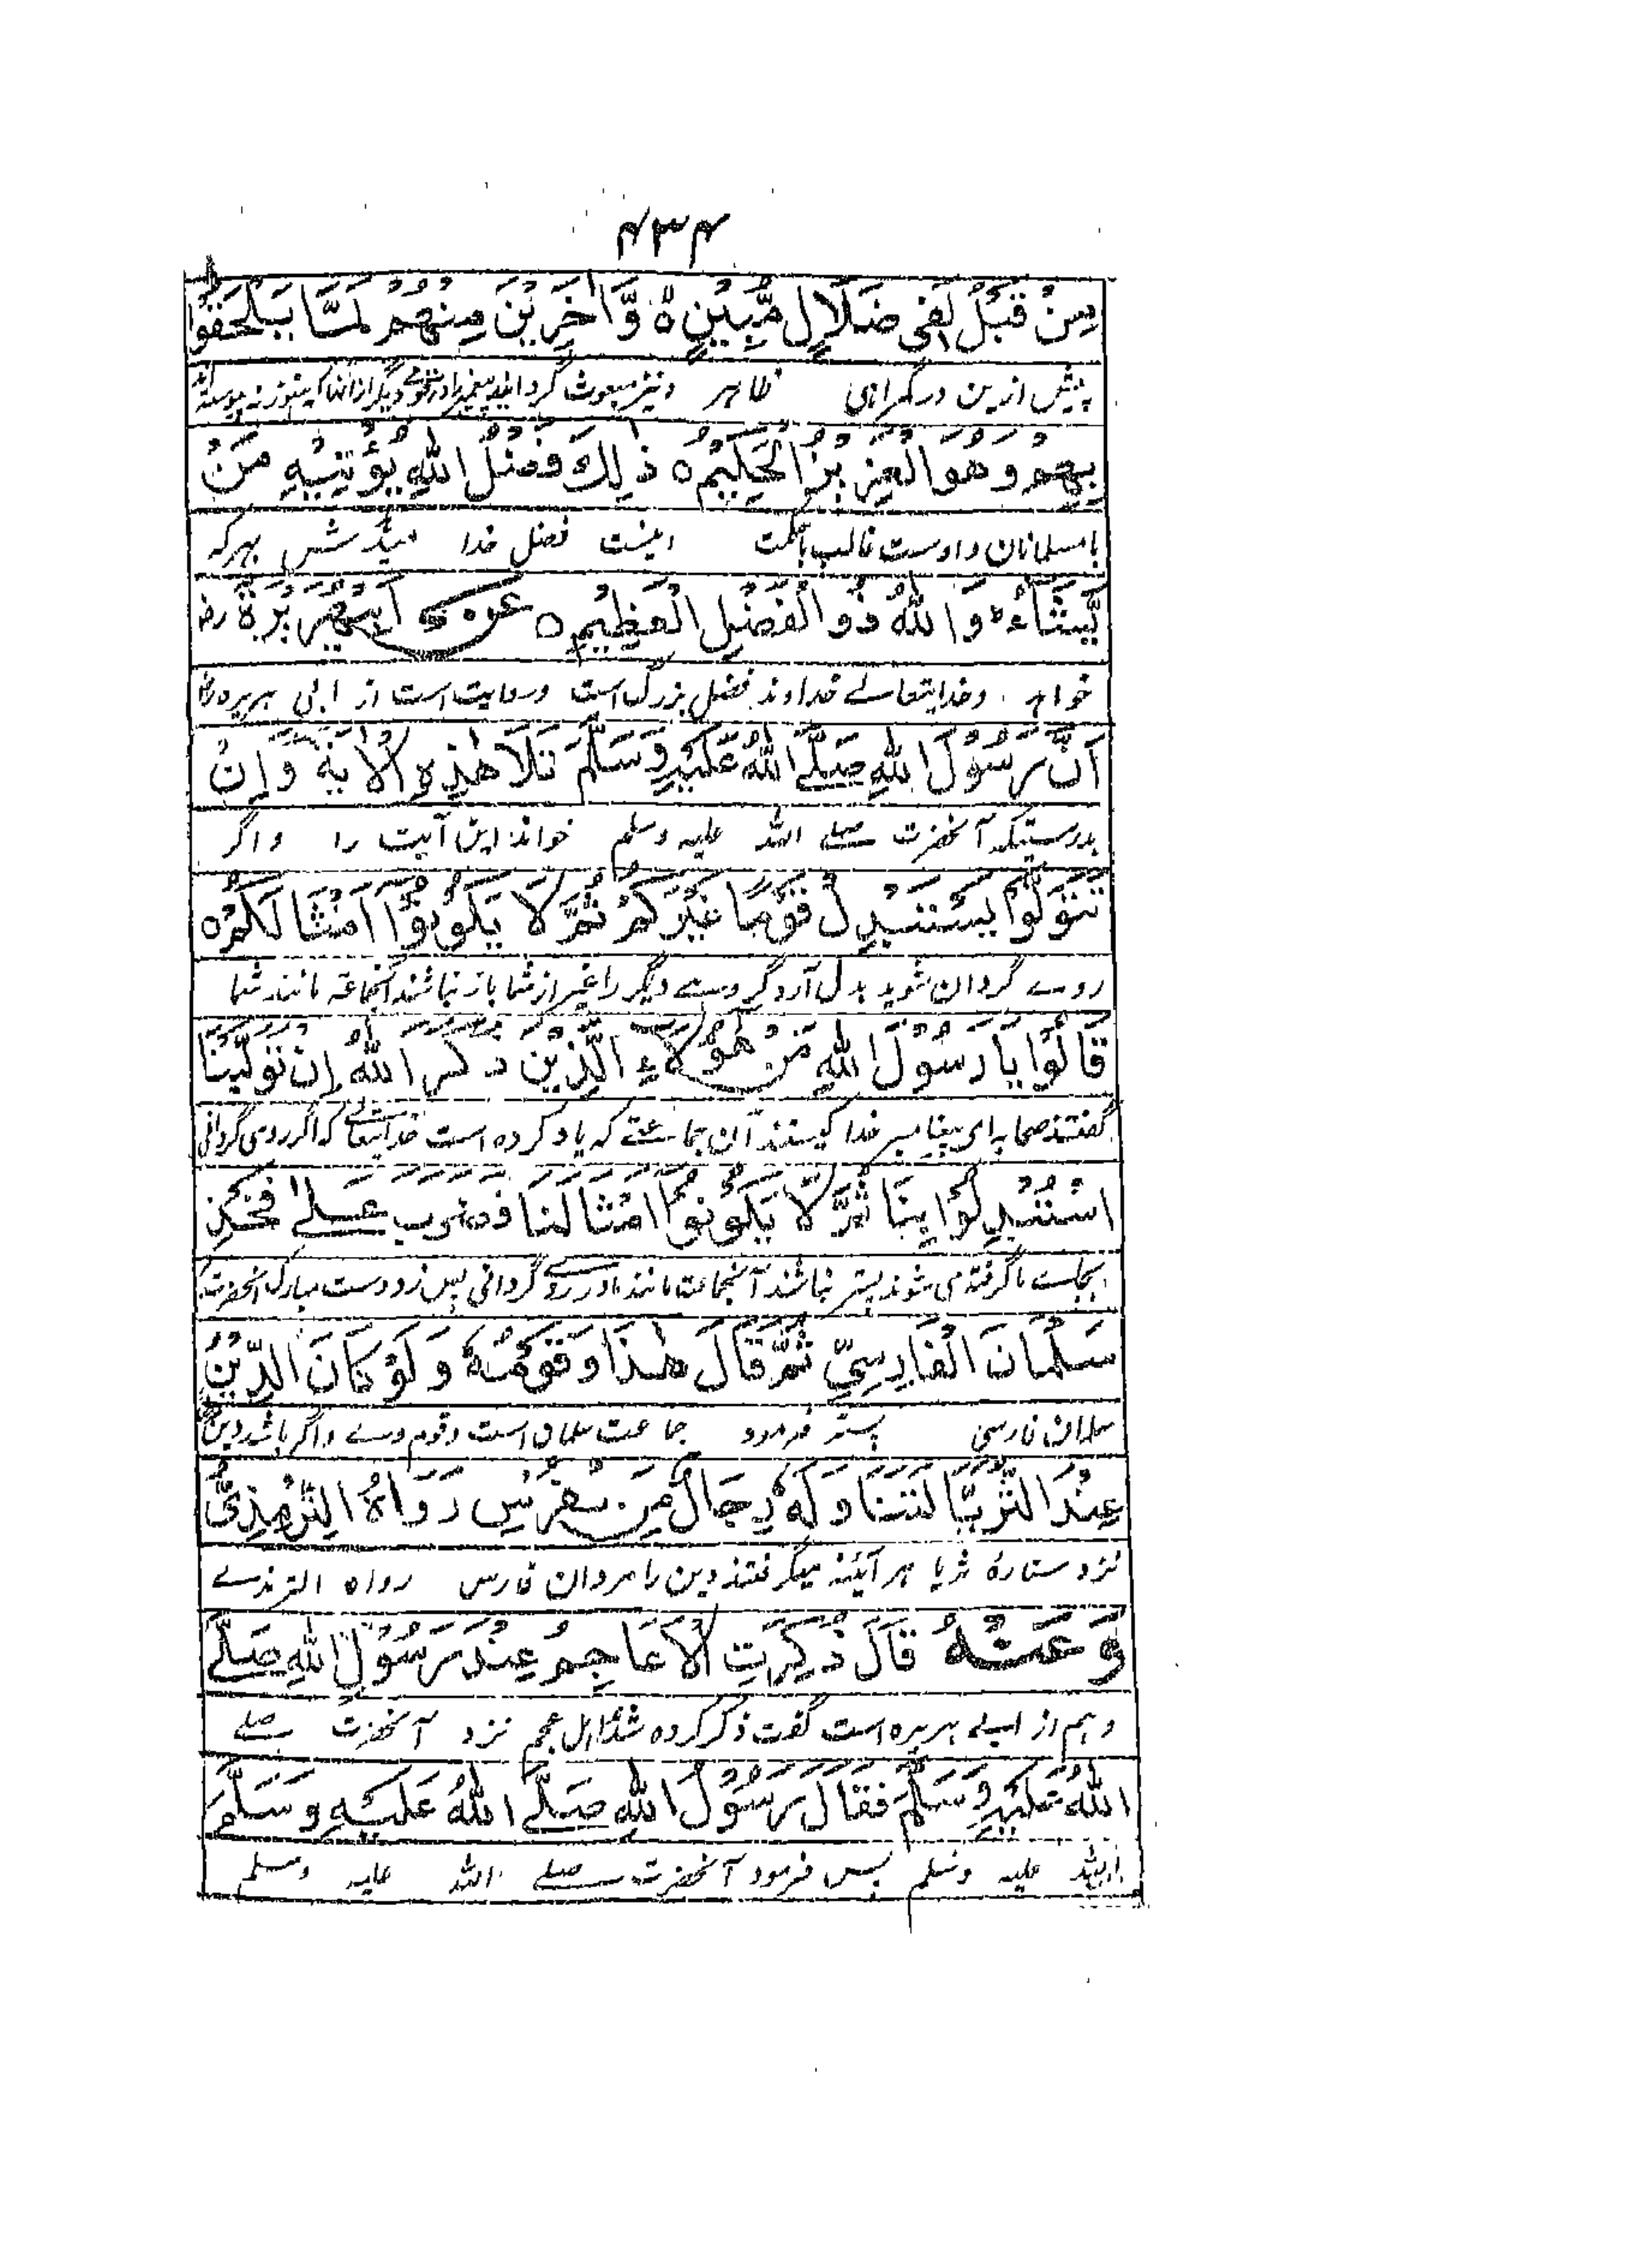 ۴۳۴
مِنْ قَبْلُ لَفِی ضَلَالٍ مُّبِیْنٍ ہ وَّاٰخَرِیْنَ مِنْهُمْ لَمَّا یَلْحَقُوْا
پیش ازین در گمراہی ظاہر و نیز مبعوث گردانید پیغمبر را در دیگر از آنها کہ ہنوز نہ پیوستہ اند
بِهِمْ وَهُوَ الْعَزِیْزُ الْحَکِیْمُ ہ ذٰلِكَ فَضْلُ اللهِ یُؤْتِیْهِ مَنْ
با مسلمانان و اوست غالب باحکمت اینست فضل خدا میدہدش بہر کہ
یَّشَآءُ وَاللهُ ذُو الْفَضْلِ الْعَظِیْمِ ہ عَنْ اَبِیْ هُرَیْرَةَ رض
خواہد و خدایتعالے خداوند فضل بزرگ است و روایت است از ابی ہریرہ رض
اَنَّ رَسُوْلَ اللهِ صَلَّی اللهُ عَلَیْهِ وَسَلَّمَ تَلَا هٰذِهِ الْاٰیَةَ وَاِنْ
بدرستیکہ آنحضرت صلے اللہ علیہ وسلم خواند این آیت را و اگر
تَتَوَلَّوْا یَسْتَبْدِلْ قَوْمًا غَیْرَکُمْ ثُمَّ لَا یَکُوْنُوْا اَمْثَالَکُمْ ہ
روے گردان شوید بدل آرد گروہے دیگر را غیر از شما باز نباشند آنجماعہ مانند شما
قَالُوْا یَا رَسُوْلَ اللهِ مَنْ هٰؤُلَاءِ الَّذِیْنَ ذَکَرَ اللهُ اِنْ تَوَلَّیْنَا
گفتند صحابہ ای پیغامبر خدا کیستند آن جماعتے کہ یاد کردہ است خدایتعالے کہ اگر روی گردانی
اسْتُبْدِلُوْا بِنَا ثُمَّ لَا یَکُوْنُوْا اَمْثَالَنَا فَضَرَبَ عَلٰے فَخِذِ
بجاے ما گرفتہ می شوند پستر نباشند آنجماعت مانند ما در روے گردانی پس زد دست مبارک آنحضرت
سَلْمَانَ الْفَارِسِیِّ ثُمَّ قَالَ هٰذَا وَقَوْمُهٗ وَلَوْ کَانَ الدِّیْنُ
سلمان فارسی پستر فرمود جماعت سلمان است و قوم وے و اگر باشد دین
عِنْدَ الثُّرَیَّا لَتَنَاوَلَهٗ رِجَالٌ مِّنَ الْفُرْسِ رَوَاهُ التِّرْمِذِیُّ
نزد ستارۂ ثریا ہر آئینہ میگرفتند دین را مردان فارس رواہ الترمذے
وَعَنْهُ قَالَ ذُکِرَتِ الْاَعَاجِمُ عِنْدَ رَسُوْلِ اللهِ صَلَّے
و ہم از ابے ہریرہ است گفت ذکر کردہ شد اہل عجم نزد آنحضرت صلے
اللهُ عَلَیْهِ وَسَلَّمَ فَقَالَ رَسُوْلُ اللهِ صَلَّے اللهُ عَلَیْهِ وَسَلَّمَ
اللہ علیہ وسلم پس فرمود آنحضرت صلے اللہ علیہ وسلم